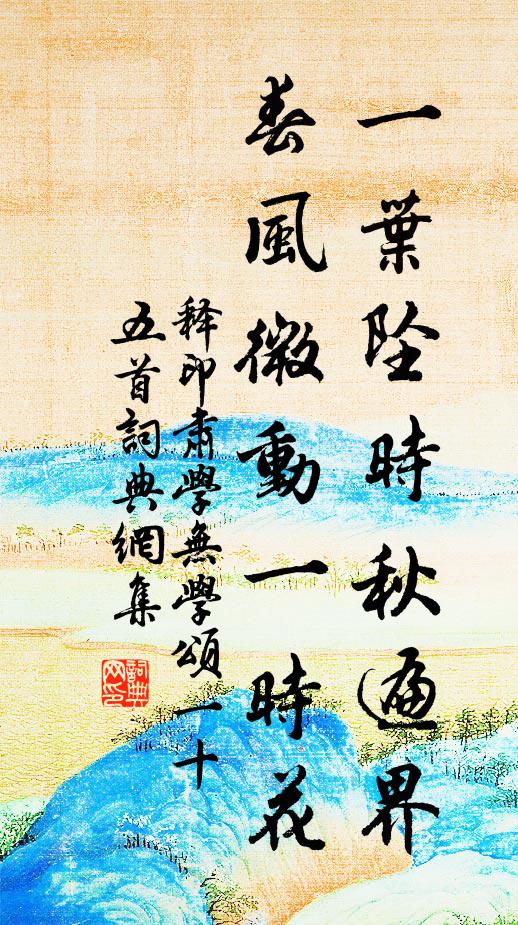 一葉墜時秋遍界
春風微動一時花
释印肅學無學頌一十
五首詞典網集
詞典
网印